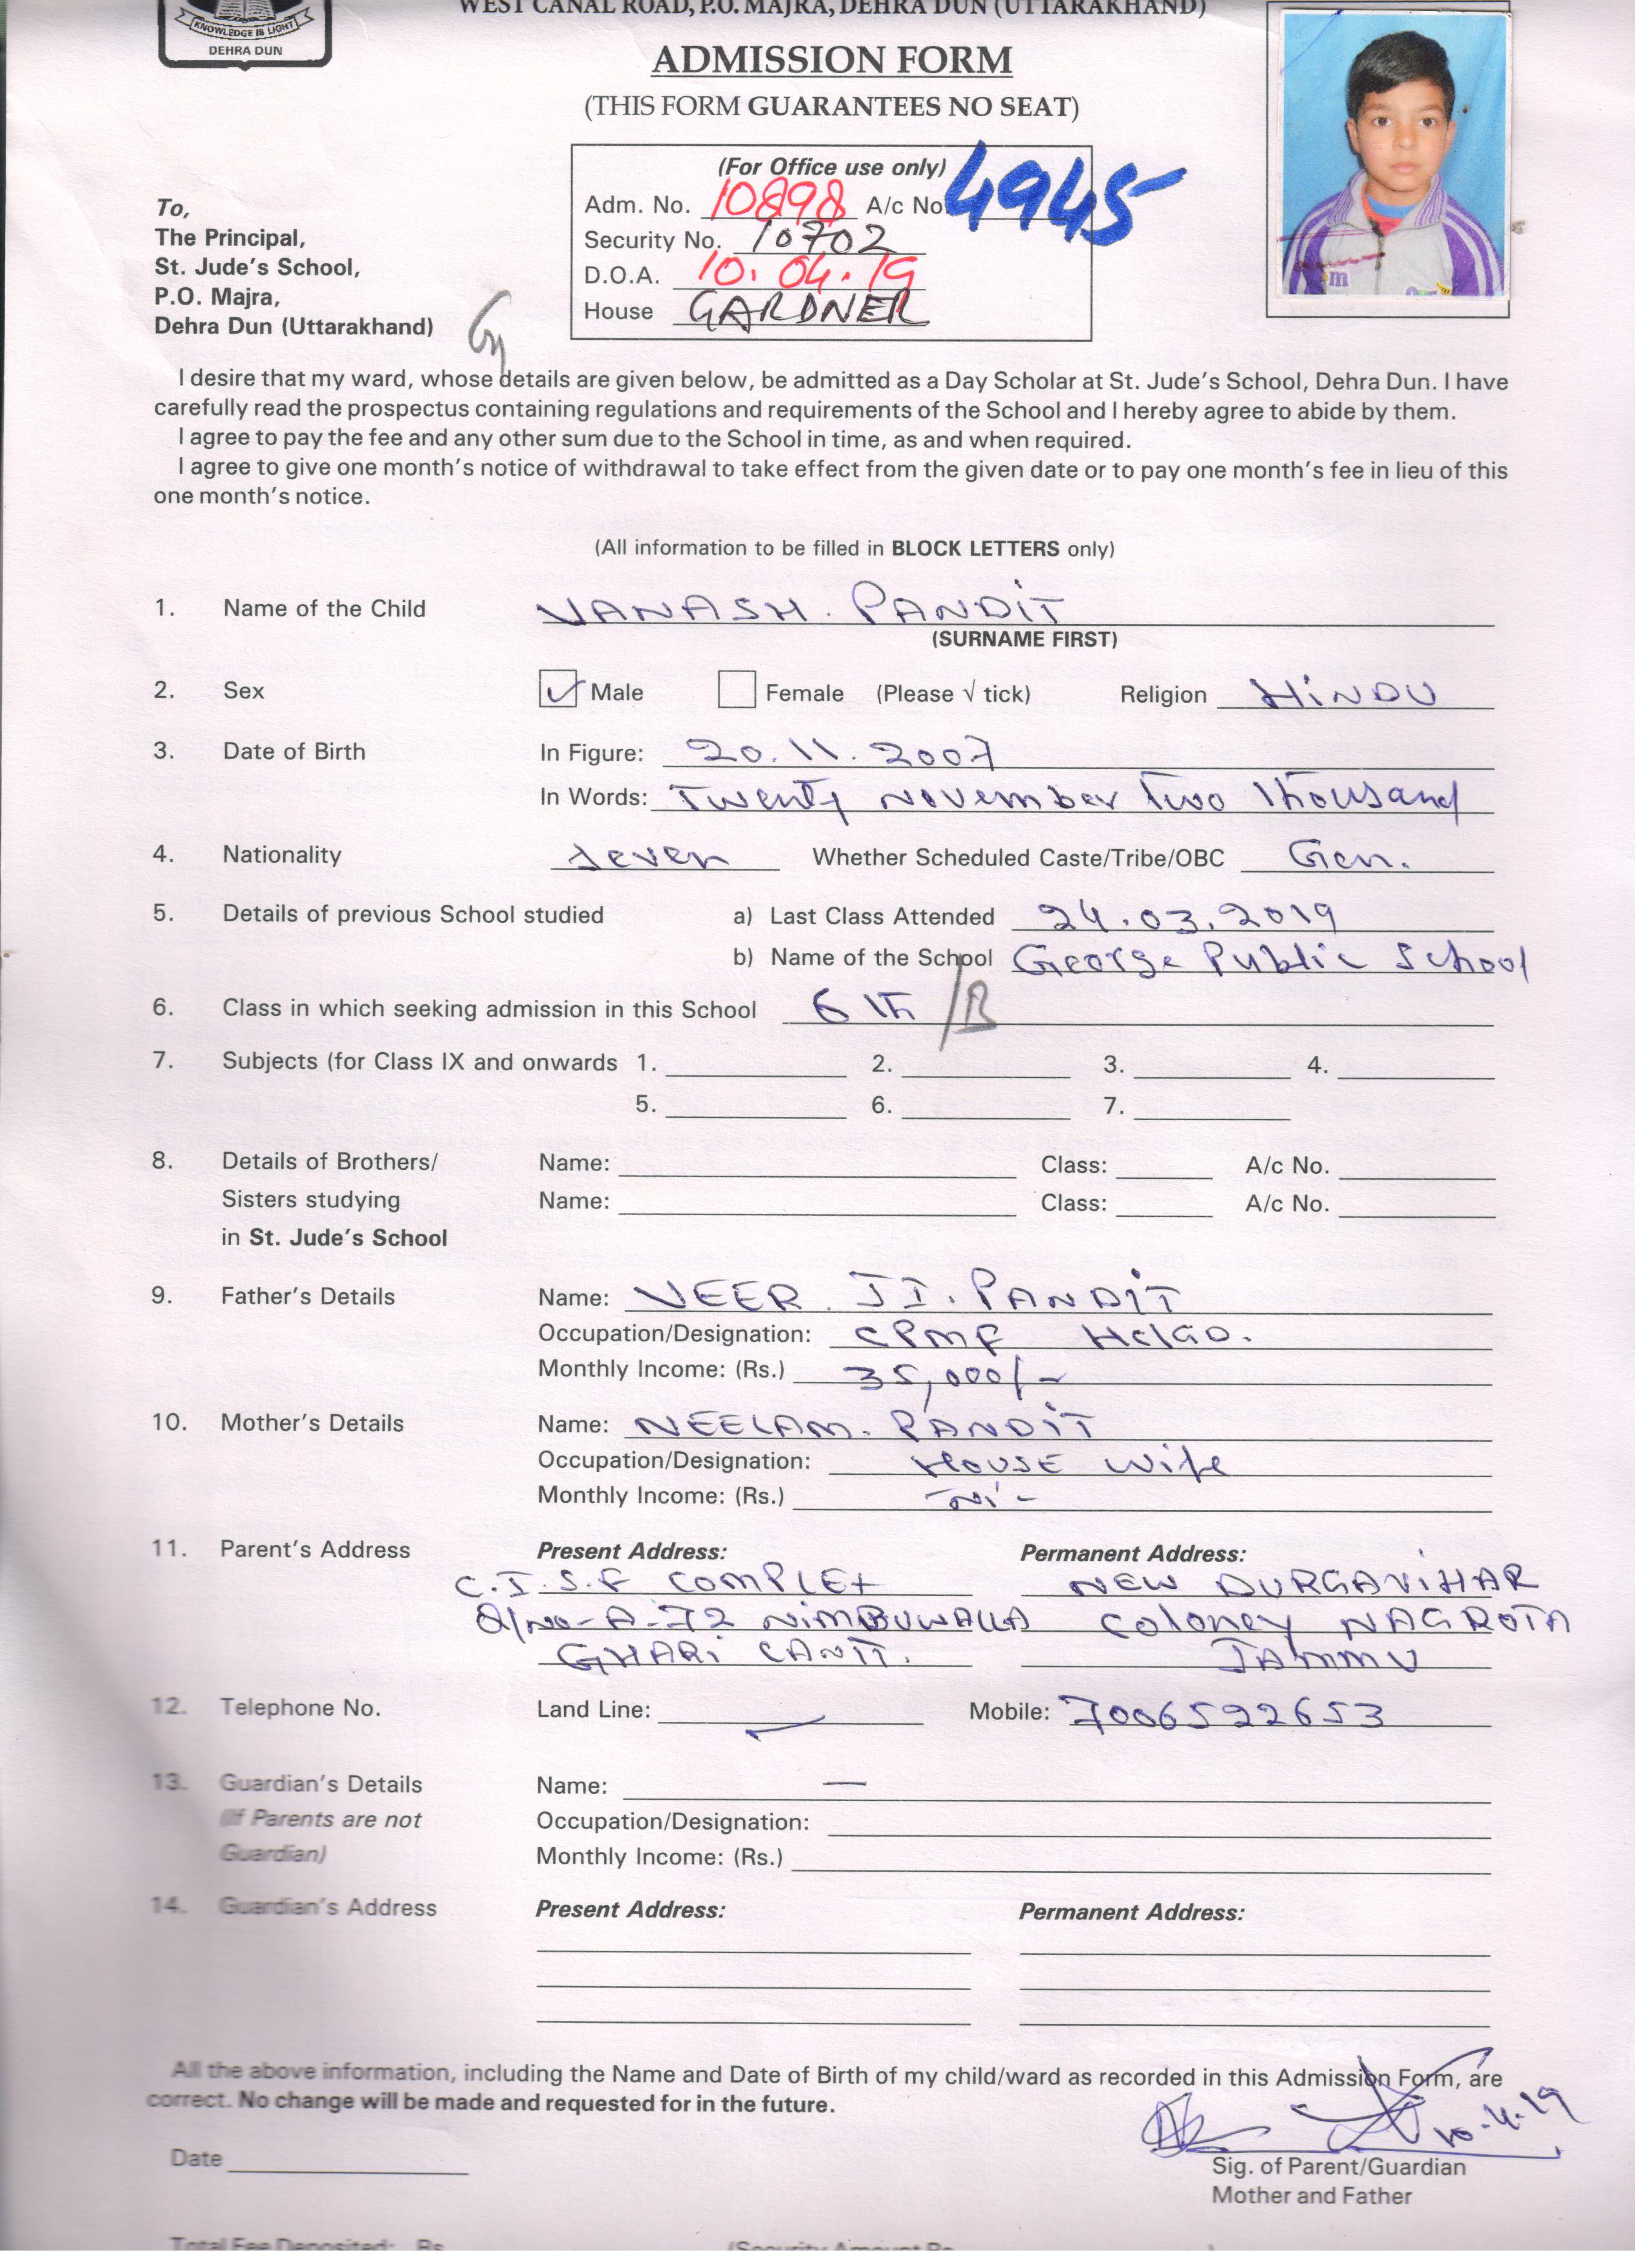 WEST CANAL ROAD, P.O. MAJRA, DEHRA DUN (UTTARAKHAND)
KNOWLEDGE IS LIGHT
DEHRA DUN
ADMISSION FORM
(THIS FORM GUARANTEES NO SEAT)
(For Office use only)
Adm. No. 10898 A/c No. 4945
Security No. 10702
D.O.A. 10.04.19
House GARDNER
To,
The Principal,
St. Jude's School,
P.O. Majra,
Dehra Dun (Uttarakhand)
I desire that my ward, whose details are given below, be admitted as a Day Scholar at St. Jude's School, Dehra Dun. I have
carefully read the prospectus containing regulations and requirements of the School and I hereby agree to abide by them.
I agree to pay the fee and any other sum due to the School in time, as and when required.
I agree to give one month's notice of withdrawal to take effect from the given date or to pay one month's fee in lieu of this
one month's notice.
(All information to be filled in BLOCK LETTERS only)
1. Name of the Child VANASH. PANDIT
(SURNAME FIRST)
2. Sex Male Female (Please √ tick) Religion HINDU
3. Date of Birth In Figure: 20.11.2007
In Words: Twenty November Two Thousand
4. Nationality seven Whether Scheduled Caste/Tribe/OBC Gen.
5. Details of previous School studied a) Last Class Attended 24.03.2019
b) Name of the School George Public School
6. Class in which seeking admission in this School 6th /B
7. Subjects (for Class IX and onwards 1. 2. 3. 4.
5. 6. 7.
8. Details of Brothers/ Name: Class: A/c No.
Sisters studying Name: Class: A/c No.
in St. Jude's School
9. Father's Details Name: VEER JI. PANDIT
Occupation/Designation: CPMF
Monthly Income: (Rs.) 35,000/-
10. Mother's Details Name: NEELAM. PANDIT
Occupation/Designation: HOUSE Wife
Monthly Income: (Rs.)
11. Parent's Address Present Address: Permanent Address:
C.I.S.F COMPLEX NEW DURGAVIHAR
Q/No-A-72 NIMBUWALLA Coloney NAGROTA
GHARI CANTT. JAMMU
12. Telephone No. Land Line: Mobile: 7006522653
13. Guardian's Details Name: —
(If Parents are not Occupation/Designation:
Guardian) Monthly Income: (Rs.)
14. Guardian's Address Present Address: Permanent Address:
All the above information, including the Name and Date of Birth of my child/ward as recorded in this Admission Form, are
correct. No change will be made and requested for in the future.
10.4.19
Date
Sig. of Parent/Guardian
Mother and Father
Total Fee Deposited: Rs. (Security Amount Rs.